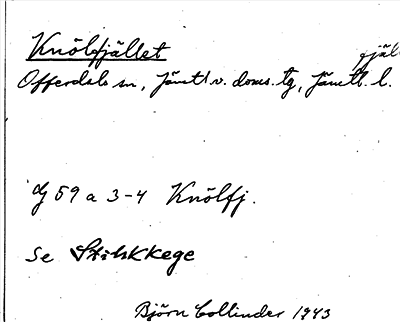 Knölfjället fjäl
Offerdals sn, Jämtl v. doms. tg, Jämtl. l.
59 a 3-4 Knölfj.
Se
Björn Collinder 1943